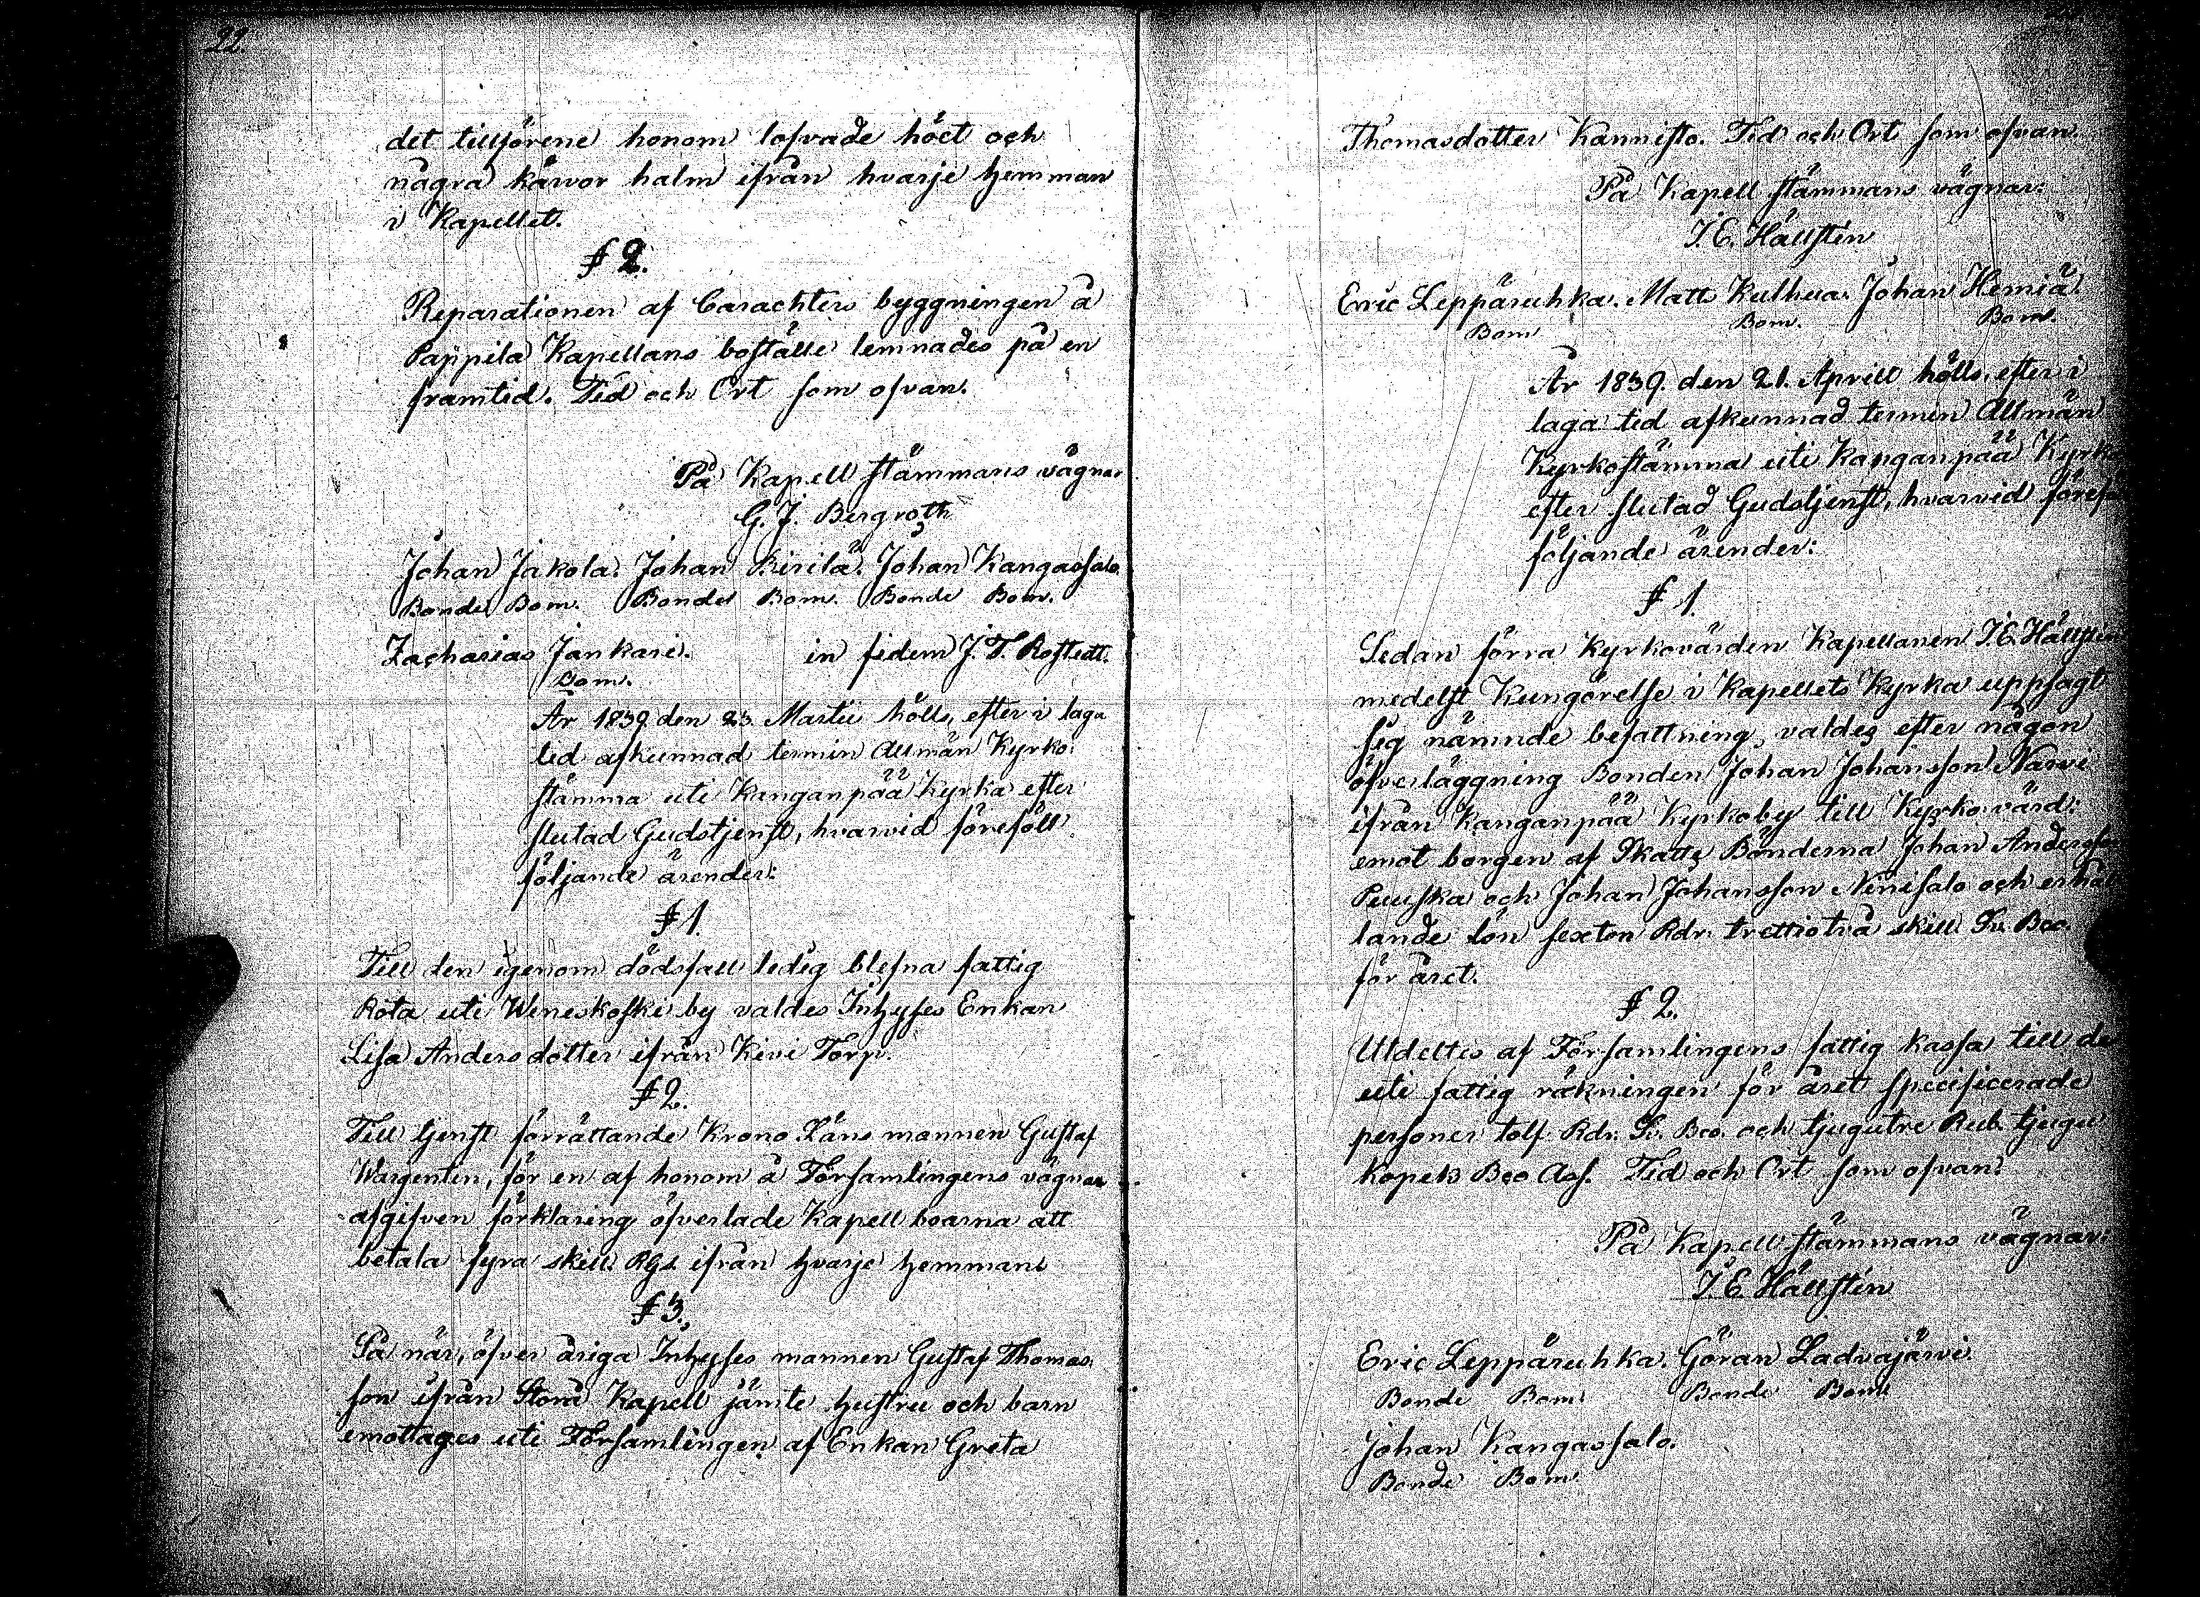 22.
det tillförene honom lofvade höet och
några kärvor halm ifrån hvarje hemman
i Kapellet.
§ 2.
Reparationen af Carachters byggningen å
Pappila Kapellans boställe lemnades på en
framtid. Tid och Ort som ofvan.
På Kapell stämmans vägnar
G. J. Bergroth
Johan Jakola. Johan Birilä. Johan Kangassalo.
Bonde Bom. Bonde Bom. Bonde Bom.
Zacharias Jankari. in fidem J. T. Rostedt.
Bom.
År 1839 den 23. Martii hölls, efter i laga
tid afkunnad termin Allmän Kyrko
stämma uti Kanganpää Kyrka efter
slutad Gudstjenst, hvarvid föreföll
följande ärender:
§ 1.
Till den igenom dödsfall ledig blefna fattig
Rota uti Wineskoski by valdes Inhyses Enkan
Lisa Anders dotter ifrån Kivi Torp.
§ 2.
Till tjenst förrättande Krono Läns mannen Gustaf
Wargentin, för en af honom å Församlingens vägnar
afgifven förklaring öfverlade Kapell boarna att
betala fyra skill. RGs ifrån hvarje hemman
§ 3.
På när, öfver åriga Inhyses mannen Gustaf Thomas
son ifrån Kapell jämte hustru och barn
emottages uti Församlingen af Enkan Greta
Thomasdotter Kannisto. Tid och Ort som ofvan.
På Kapell stämmans vägnar:
I. E. Hällstén
Eric Leppäruhka. Matts Kulhua. Johan Hemiä.
Bom Bom. Bom.
År 1839. den 21. Aprill hölls, efter i
laga tid afkunnad termin Allmän
Kyrkostämma uti Kanganpää Kyrka
efter slutad Gudstjenst, hvarvid
följande ärender:
§ 1.
Sedan förra Kyrkovärden Kapellanen I. E. Hällstén
medelst Kungörelse i Kapellets Kyrka uppsagt
sig nämnde befattning, valdes efter någon
öfverläggning Bonden Johan Johansson Narvi
ifrån Kanganpää Kyrkoby till Kyrkovärd:
emot borgen af Skatte Bönderna Johan Andersson
Peuska och Johan Johansson Niinisalo och erhål
lande lön sexton Rdr. trettiotvå skill. Sv. Bco.
för året.
§ 2.
Utdeltes af Församlingens fattig kassa till de
uti fattig räkningen för året specificerade
personer tolf Rdr. Sv. Bco. och tjugutre Rub. tjugu
kopek Bco Ass. Tid och Ort som ofvan.
På Kapell stämmans vägnar:
I. E. Hällstén
Eric Leppäruhka. Göran Ladvajärvi.
Bonde Bom. Bonde Bom
Johan Kangassalo.
Bonde Bom